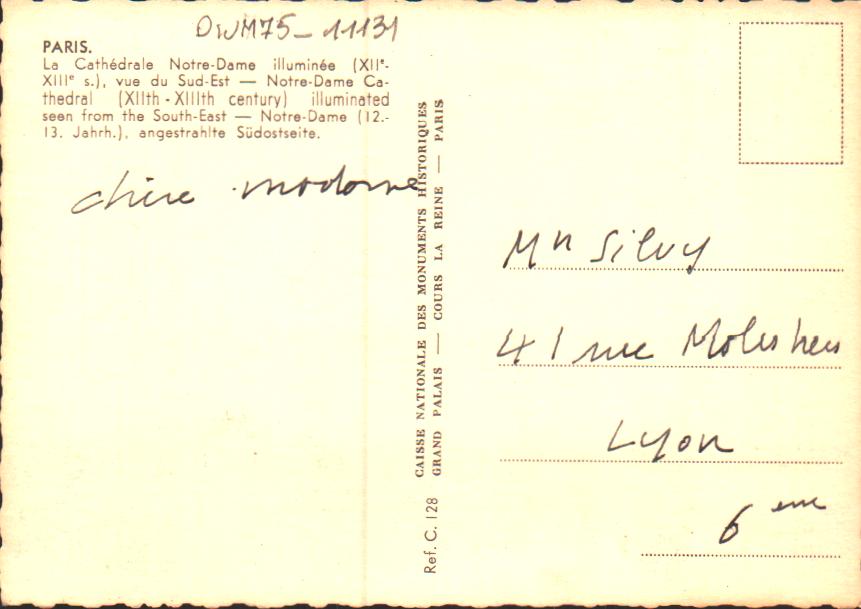 DWM75-11131
PARIS.
La Cathédrale Notre-Dame illuminée (XIIe-
XIIIe s.), vue du Sud-Est — Notre-Dame Ca-
thedral (XIIth - XIIIth century) illuminated
seen from the South-East — Notre-Dame (12.-
13. Jahrh.), angestrahlte Südostseite.
chère madame
CAISSE NATIONALE DES MONUMENTS HISTORIQUES
GRAND PALAIS — COURS LA REINE — PARIS
Ref. C. 128
Silvy
41 rue
Lyon
6 eme